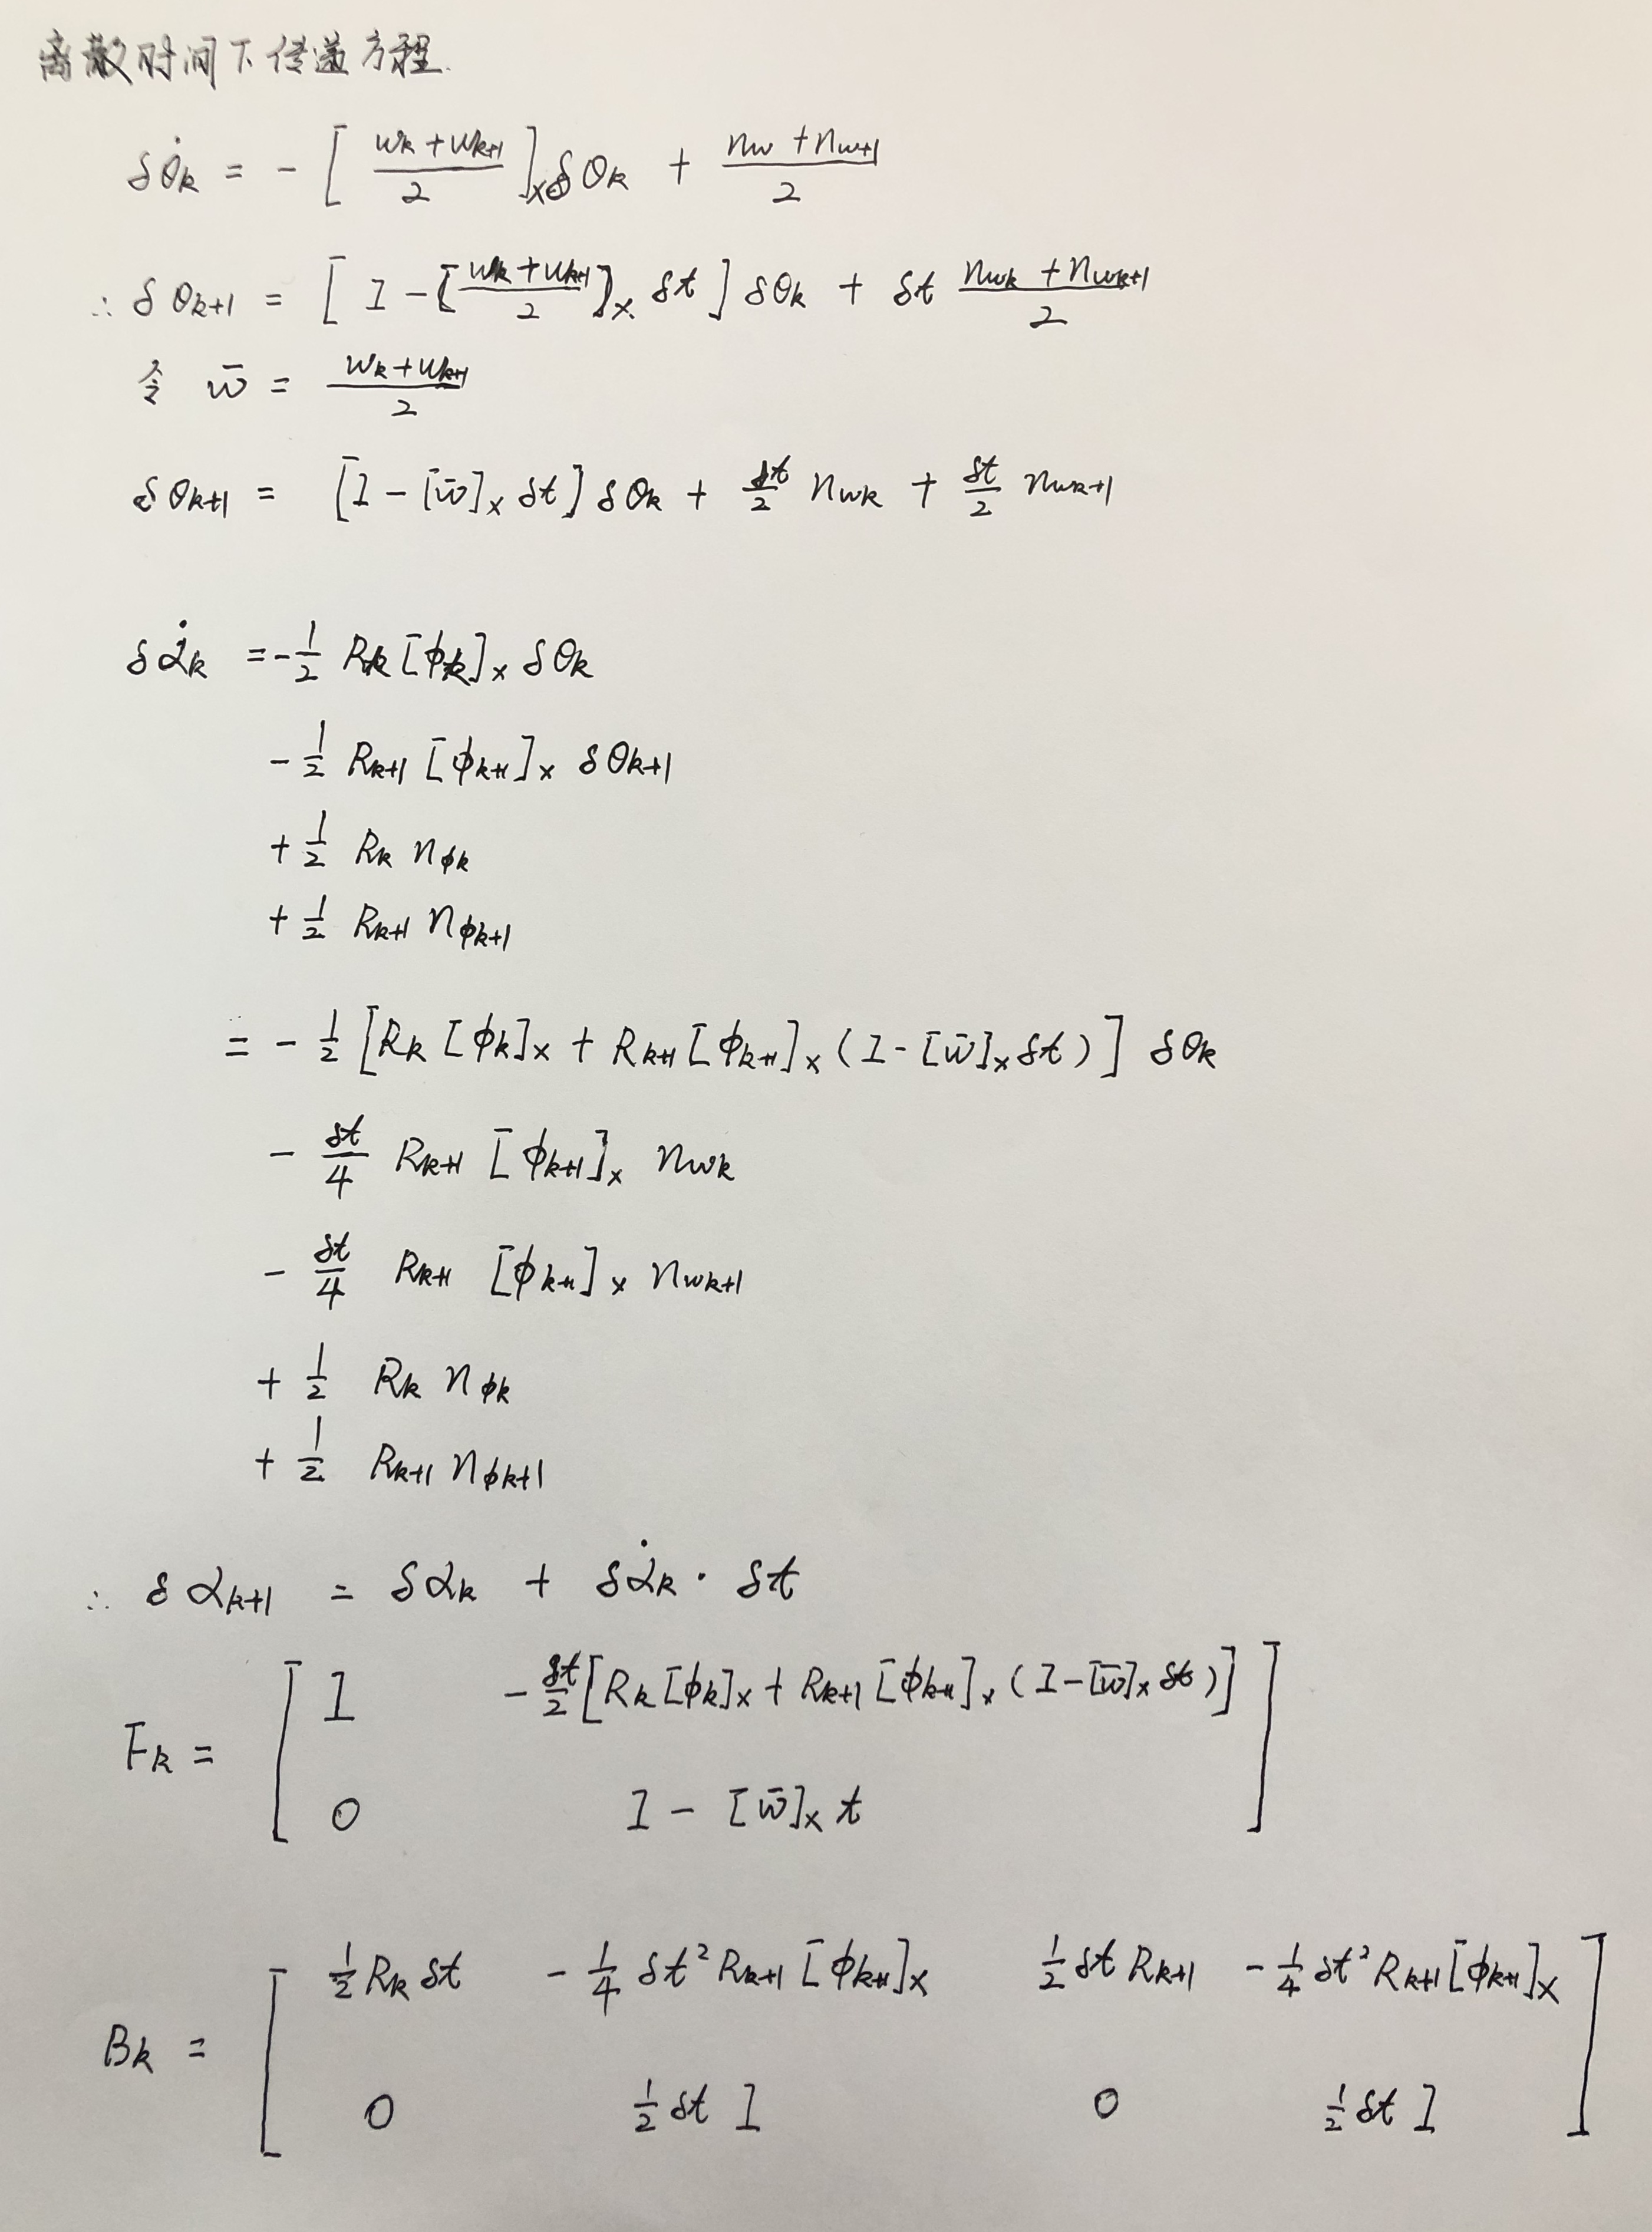 离散时间下传递方程.
δθ̇k = - [ (wk + wk+1)/2 ]× δθk + (nw + nw+1)/2
∴ δθk+1 = [ I - [(wk + wk+1)/2]× δt ] δθk + δt (nwk + nwk+1)/2
令 w̄ = (wk + wk+1)/2
δθk+1 = [I - [w̄]× δt] δθk + δt/2 nwk + δt/2 nwk+1
δα̇k = -1/2 Rk [ϕk]× δθk
- 1/2 Rk+1 [ϕk+1]× δθk+1
+ 1/2 Rk nϕk
+ 1/2 Rk+1 nϕk+1
= - 1/2 [Rk [ϕk]× + Rk+1 [ϕk+1]× (I - [w̄]× δt)] δθk
- δt/4 Rk+1 [ϕk+1]× nwk
- δt/4 Rk+1 [ϕk+1]× nwk+1
+ 1/2 Rk nϕk
+ 1/2 Rk+1 nϕk+1
∴ δαk+1 = δαk + δα̇k · δt
Fk = [ I   - δt/2 [Rk [ϕk]× + Rk+1 [ϕk+1]× (I - [w̄]× δt)]
0   I - [w̄]× t ]
Bk = [ 1/2 Rk δt   - 1/4 δt² Rk+1 [ϕk+1]×   1/2 δt Rk+1   - 1/4 δt² Rk+1 [ϕk+1]×
0   1/2 δt I   0   1/2 δt I ]